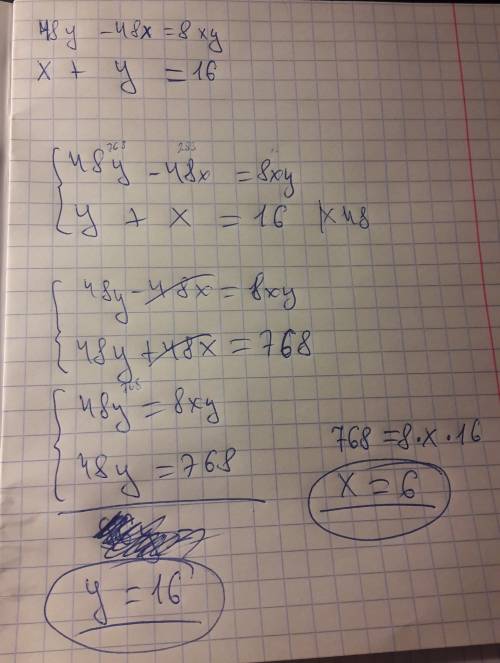 48y - 48x = 8xy
x + y = 16
768 288
48y - 48x = 8xy
y + x = 16 | ×48
48y - 48x = 8xy
48y + 48x = 768
768
48y = 8xy
48y = 768
768 = 8·x·16
x = 6
y = 16